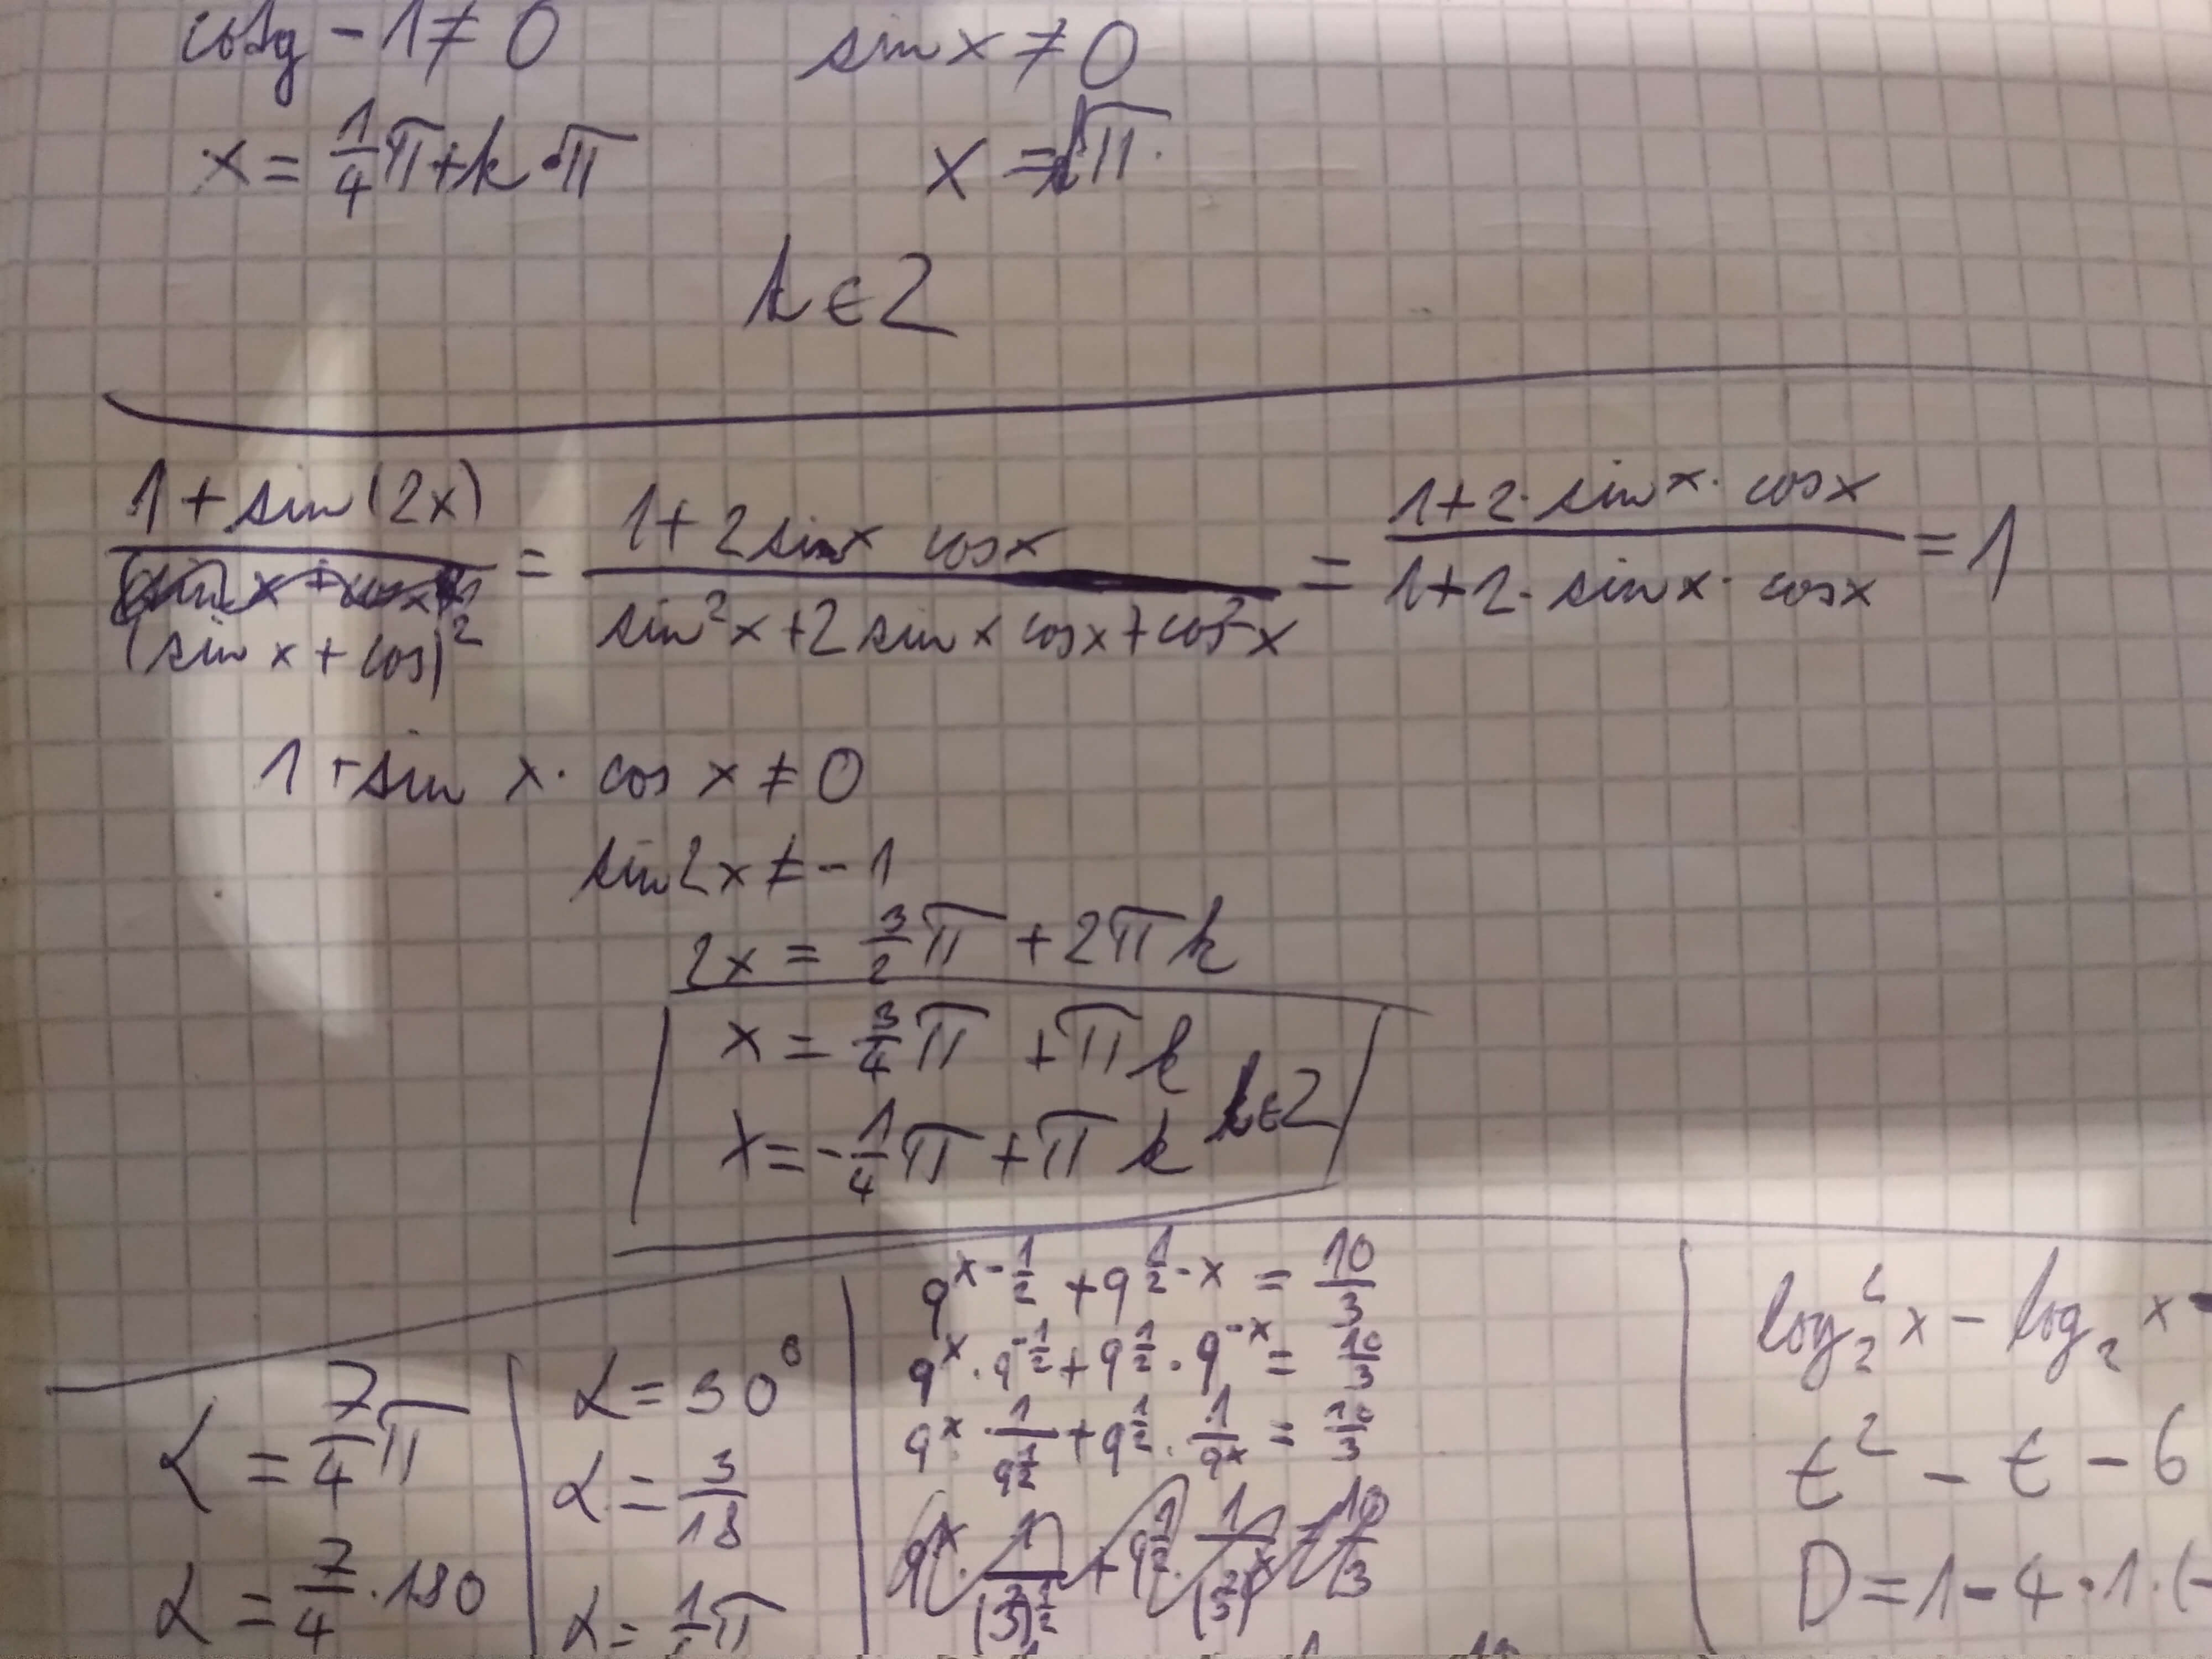 cotg - 1 ≠ 0
sin x ≠ 0
x = 1/4 π + k · π
x = kπ
k ∈ Z
(1 + sin(2x))/(sin x + cos)² = (1 + 2 sin x cos x)/(sin²x + 2 sin x cos x + cos²x) = (1 + 2 · sin x · cos x)/(1 + 2 · sin x · cos x) = 1
1 + sin x · cos x ≠ 0
sin 2x ≠ -1
2x = 3/2 π + 2πk
x = 3/4 π + πk
x = -1/4 π + πk k ∈ Z
α = 7/4 π
α = 7/4 · 180
α = 30°
α = 3/18
α = π
9^(x - 1/2) + 9^(1/2 - x) = 10/3
9^x · 9^(-1/2) + 9^(1/2) · 9^(-x) = 10/3
9^x · 1/9^(1/2) + 9^(1/2) · 1/9^x = 10/3
log₂²x - log₂ x -
t² - t - 6
D = 1 - 4 · 1 · (-